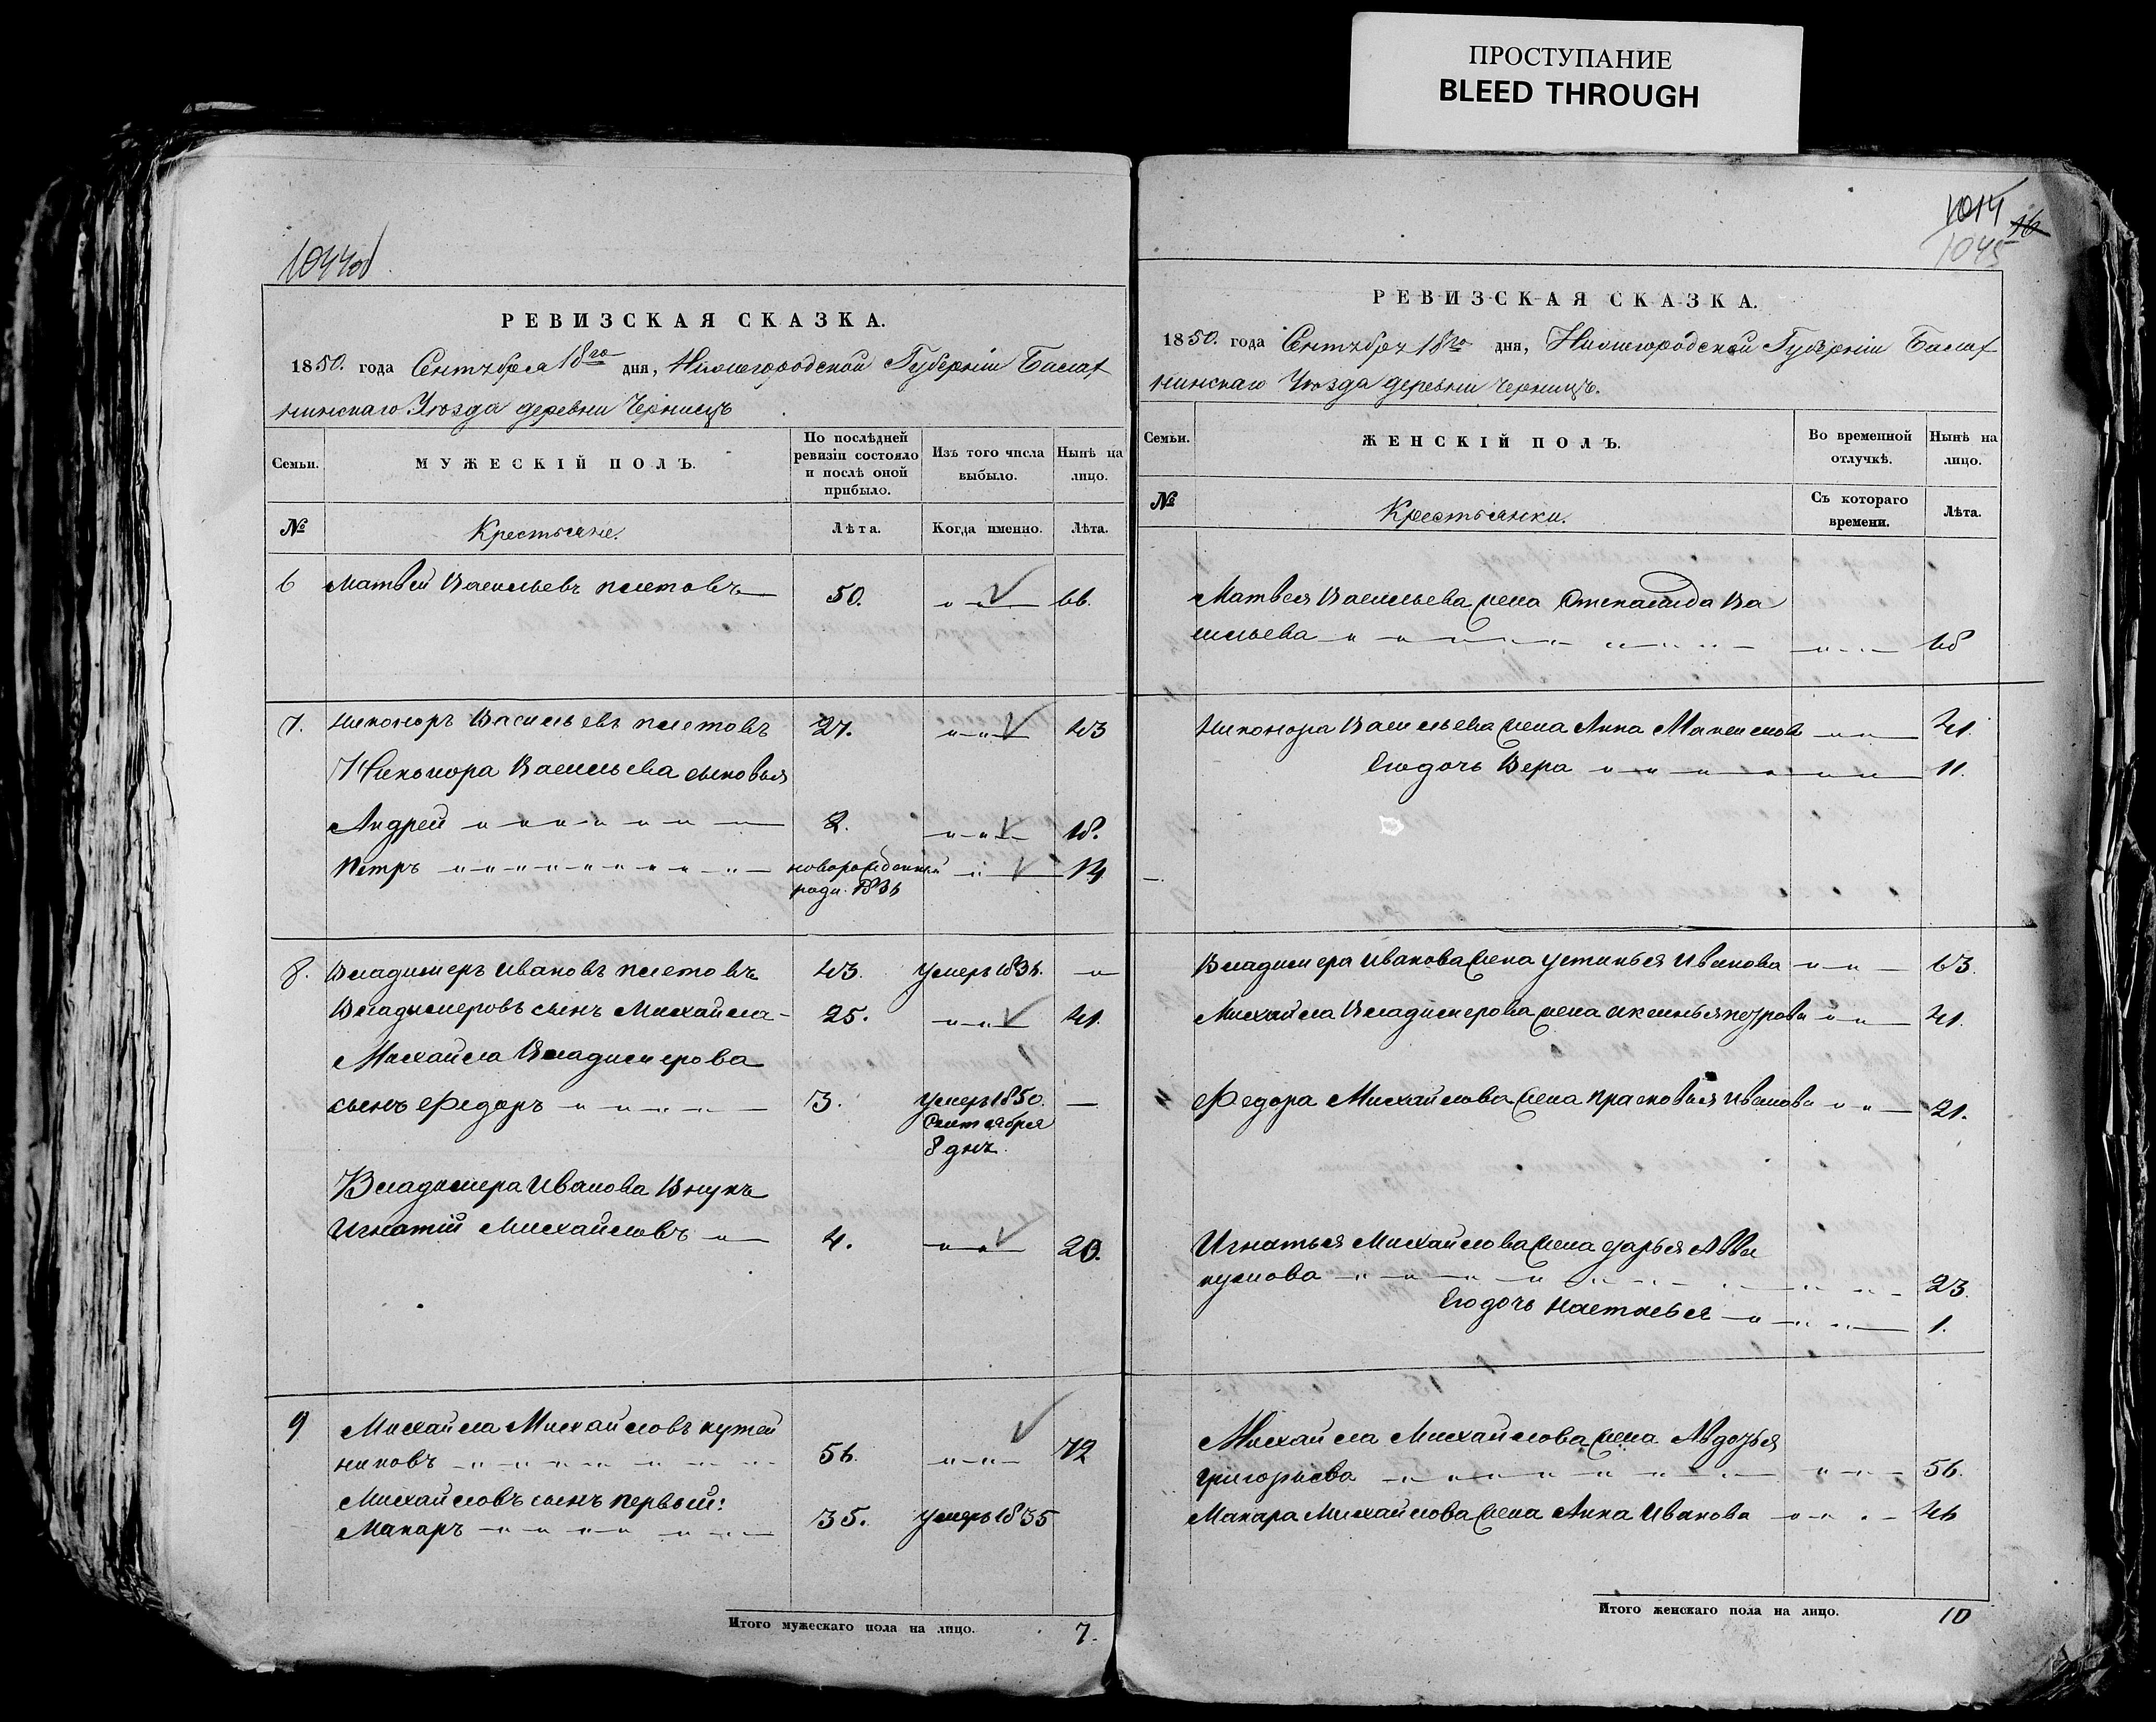 ПРОСТУПАНИЕ
BLEED THROUGH
1044об
РЕВИЗСКАЯ СКАЗКА.
1850. года Сентебреа 18го дня, Нижегородской Губерніи Балах
нинскаго Уезда деревни Черницъ
Семьи.
МУЖЕСКІЙ ПОЛЪ.
По послѣдней
ревизіи состояло
и послѣ оной
прибыло.
Изъ того числа
выбыло.
Нынѣ на
лицо.
№
Крестьяне.
Лѣта.
Когда именно.
Лѣта.
6 Матвей Васильевъ 50. 66.
7. Никоноръ Васильевъ 27. 43
Никонора Васильева сыновья
Андрей 2. 18.
Петръ новорожденный 14
роди. 1836
8. Владимеръ Ивановъ 43. умеръ 1836.
Владимеровъ сынъ Михайла 25. 41.
Михайла Владимерова
сынъ Федоръ 3. умеръ 1850.
Сентября
8 днъ.
Владимера Иванова Внукъ
Игнатій Михайловъ 4. 20.
9 Михайла Михайловъ кутей
никовъ 56. 72
Михайловъ сынъ первый:
Макаръ 35. умеръ 1835
Итого мужескаго пола на лицо. 7.
1014 16
1045
РЕВИЗСКАЯ СКАЗКА.
1850. года Сентебреа 18го дня, Нижегородской Губерніи Балах
нинскаго Уезда деревни Черницъ.
Семьи.
ЖЕНСКІЙ ПОЛЪ.
Во временной
отлучкѣ.
Нынѣ на
лицо.
№
Крестьянки.
Съ котораго
времени.
Лѣта.
Матвея Васильева жена Степанида Ва
сильева 48
Никонора Васильева жена Анна Максимова 41.
Его дочь Вера 11.
Владимера Иванова жена устинья Иванова 63.
Михайла Владимерова жена аксинья петрова 41.
Федора Михайлова жена прасковья Иванова 21.
Игнатья Михайлова жена дарья Авва
кумова 23.
Его дочь настасья 1.
Михайла Михайлова жена Авдотья
григорьева 56.
Макара Михайлова жена Анна Иванова 46
Итого женскаго пола на лицо. 10